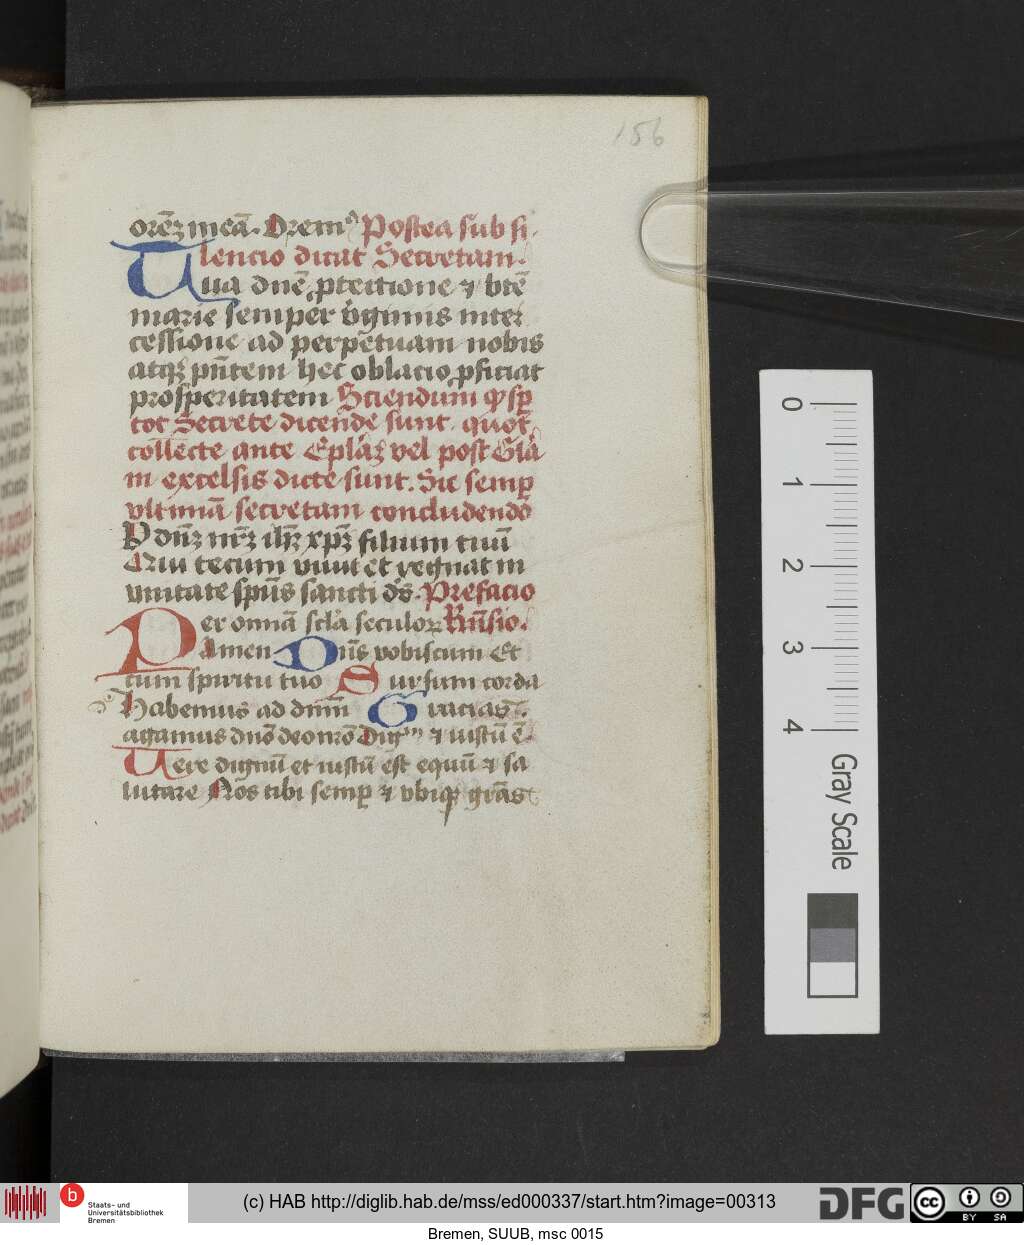 156
orēz meā. Oremꝰ Postea sub si
lencio dicat Secretam.
Tua dnē ꝓtectione ⁊ btē
marie semper v̓ginis inter
cessione ad perpetuam nobis
atqꝫ pn̄tem hec oblacio ꝓficiat
prosperitatem Sciendum qꝫ sp̄
tot Secrete dicende sunt, quot
collecte ante Ep̄laꝫ vel post Glā
in excelsis dicte sunt. Sic semp̄
vltimā secretam concludendo
P dn̄ꝫ nr̄ꝫ ih̄ꝫ xp̄ꝫ filium tuū
Qui tecum viuit et regnat in
vnitate sp̄ūs sancti ds̄. Prefacio
Per omnia scl̄a seculoꝝ Rn̄sio.
Amen Dn̄s vobiscum Et
cum spiritu tuo Sursum corda
Habemus ad dnm̄ Gracias
agamus dnō deo nrō Dig̅ ⁊ iustū ē
Vere dignū et iustū ēst equū ⁊ sa
lutare Nos tibi semp̄ ⁊ vbiqꝫ grās
0
1
2
3
4
Gray Scale
b
Staats- und
Universitätsbibliothek
Bremen
(c) HAB http://diglib.hab.de/mss/ed000337/start.htm?image=00313
DFG
cc BY SA
Bremen, SUUB, msc 0015